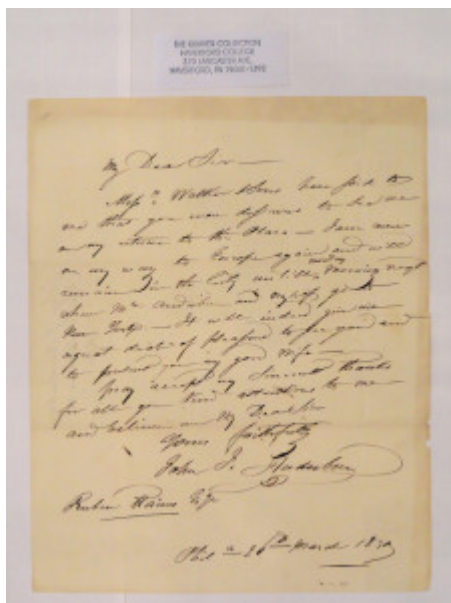 HAVERFORD COLLEGE
370 LANCASTER AVE.
HAVERFORD, PA 19041-1392
My Dear Sir —
Messrs. Walker & Sons have said to
me that you were desirous to see me
on my return to this Place — I am now
on my way to Europe again and will
remain in the City until Morning next
when Mrs. Audubon and myself go to
New York — It will indeed give me
a great deal of pleasure to see you and
to present you my good Wife —
Pray accept my sincerest thanks
for all your kind attentions to me
and believe me My Dear Sir
Yours faithfully
John J. Audubon
Reuben Haines Esqr
Phila 26th March 1830